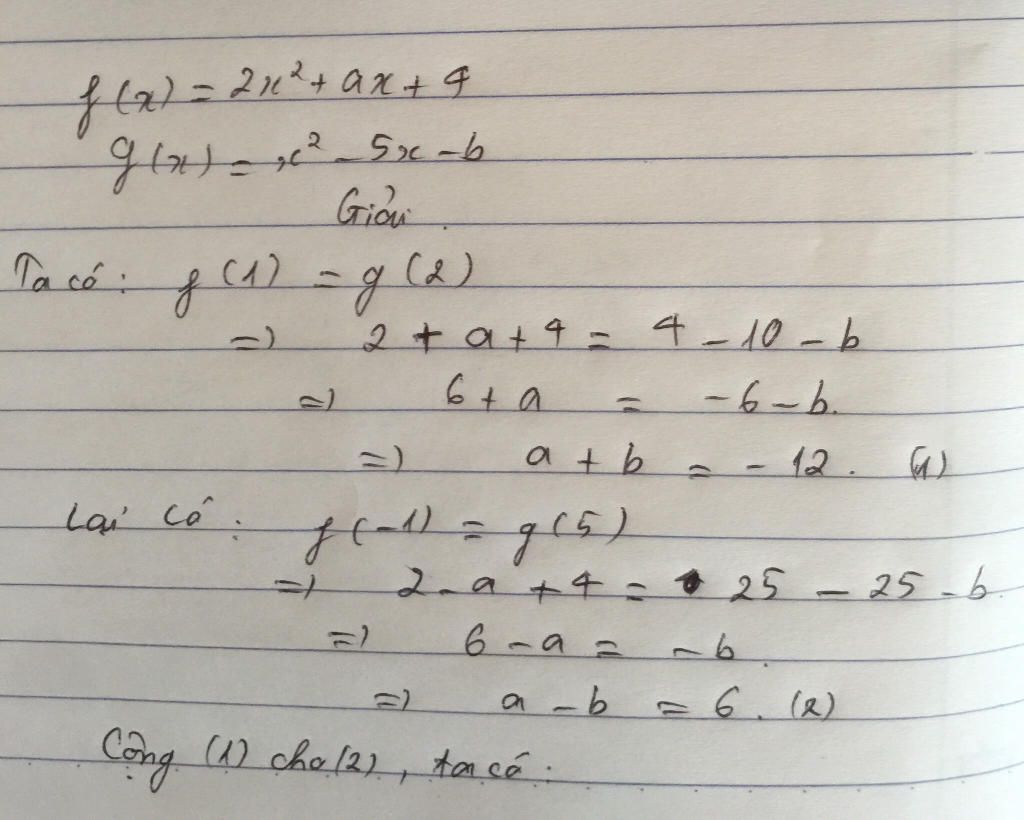 f(x) = 2x² + ax + 4
g(x) = x² - 5x - b
Giải
Ta có: f(1) = g(2)
=> 2 + a + 4 = 4 - 10 - b
=> 6 + a = -6 - b.
=> a + b = -12. (1)
Lại có: f(-1) = g(5)
=> 2 - a + 4 = 25 - 25 - b
=> 6 - a = -b.
=> a - b = 6. (2)
Cộng (1) cho (2), ta có: